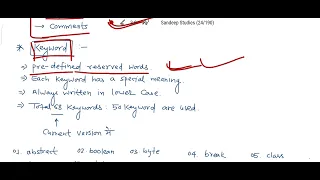 → Comments
Sandeep Studies (24/190)
* Keyword :-
⇒ pre-defined reserved words.
⇒ Each keyword has a special meaning.
⇒ Always written in lower case.
⇒ Total 53 keywords : 50 keyword are used.
Current version में
01. abstract 02. boolean 03. byte 04. break 05. class